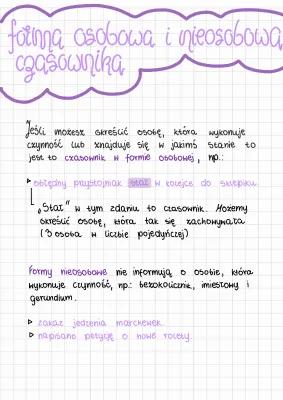 forma osobowa i nieosobowa
czasownika
Jeśli możesz określić osobę, która wykonuje
czynność lub znajduje się w jakimś stanie to
jest to czasownik w formie osobowej, np.:
obłędny przystojniak stał w kolejce do sklepiku
„Stał" w tym zdaniu to czasownik. Możemy
określić osobę, która tak się zachowywała
(3 osoba w liczbie pojedyńczej)
Formy nieosobowe nie informują o osobie, która
wykonuje czynność, np.: bezokolicznik, imiesłowy i
gerundium.
zakaz jedzenia marchewek.
napisano petycję o nowe rolety.